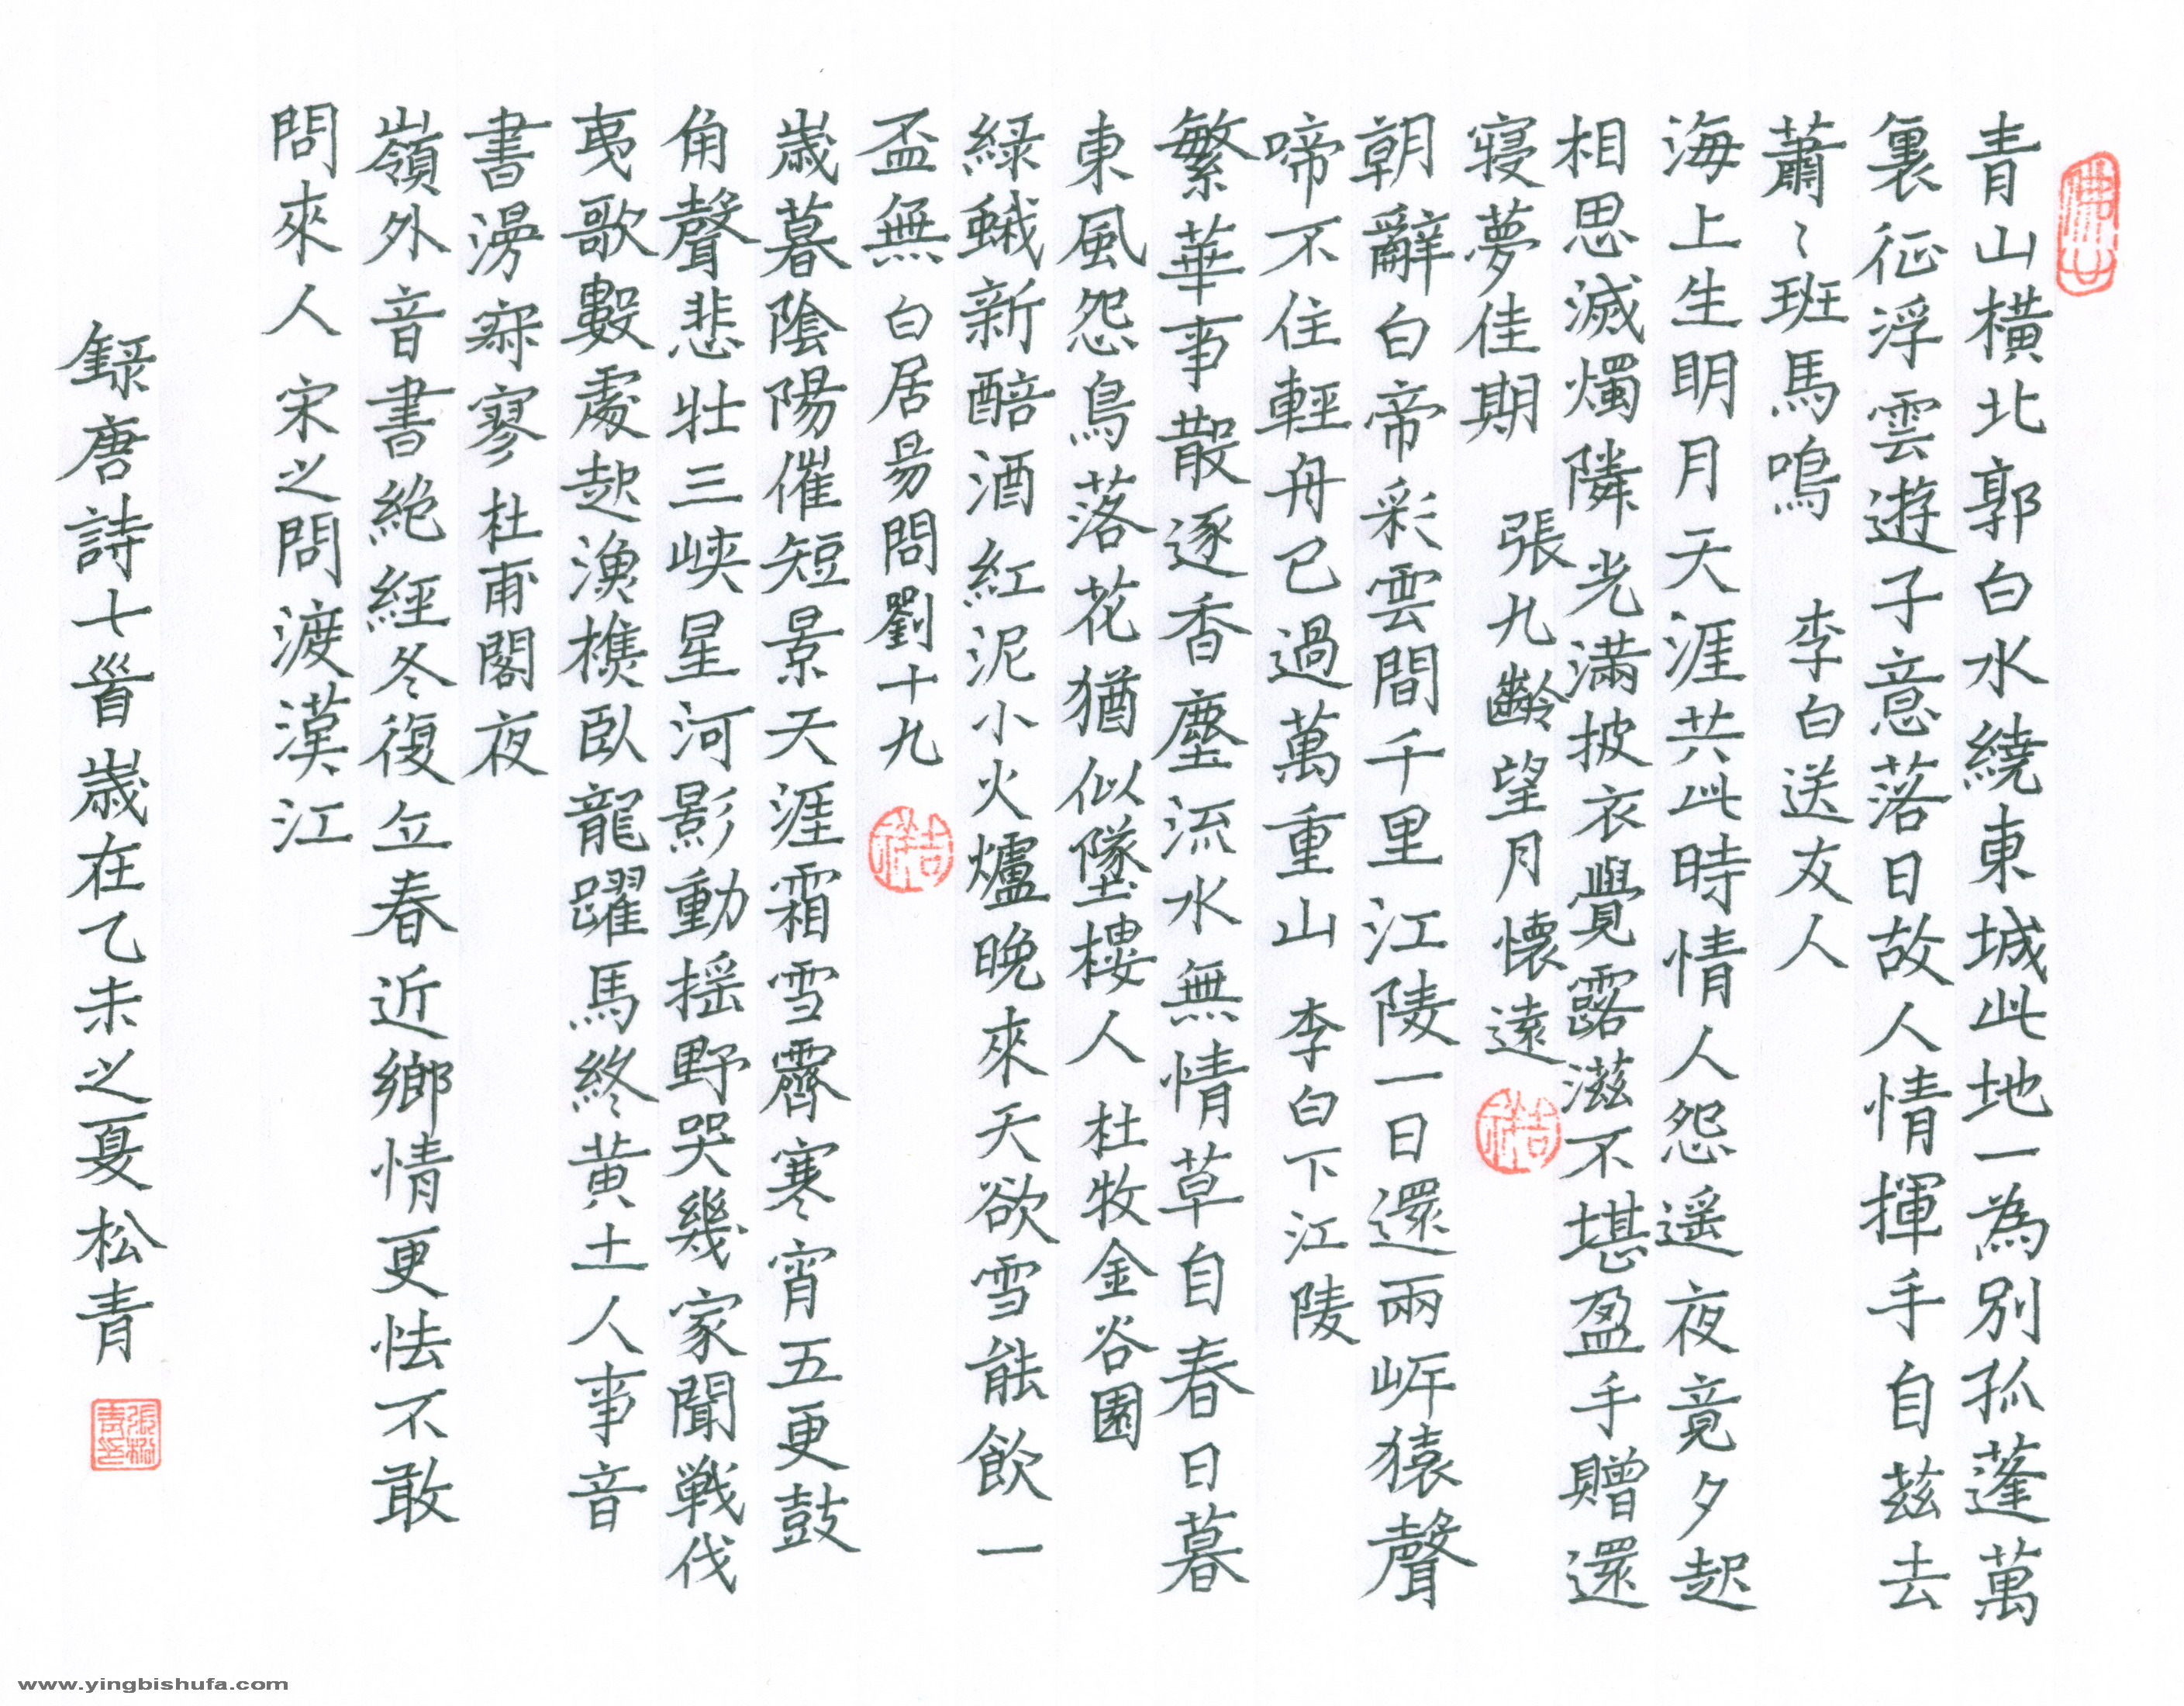 青山橫北郭白水繞東城此地一為別孤蓬萬
裏征浮雲遊子意落日故人情揮手自茲去
蕭〻班馬鳴 李白送友人
海上生明月天涯共此時情人怨遥夜竟夕起
相思滅燭隣光滿披衣覺露滋不堪盈手贈還
寝夢佳期 張九齡望月懷遠
吉祥
朝辭白帝彩雲間千里江陵一日還兩岸猿聲
啼不住輕舟已過萬重山 李白下江陵
繁華事散逐香塵流水無情草自春日暮
東風怨鳥落花猶似墜樓人 杜牧金谷園
緑蛾新醅酒紅泥小火爐晚來天欲雪能飲一
盃無 白居易問劉十九
吉祥
歲暮陰陽催短景天涯霜雪霽寒宵五更鼓
角聲悲壯三峽星河影動揺野哭幾家聞戰伐
夷歌數處起漁樵臥龍躍馬終黄土人事音
書漫寂寥 杜甫閣夜
嶺外音書絶經冬復立春近鄉情更怯不敢
問來人 宋之問渡漢江
録唐詩七首歲在乙未之夏松青
張松青印
www.yingbishufa.com